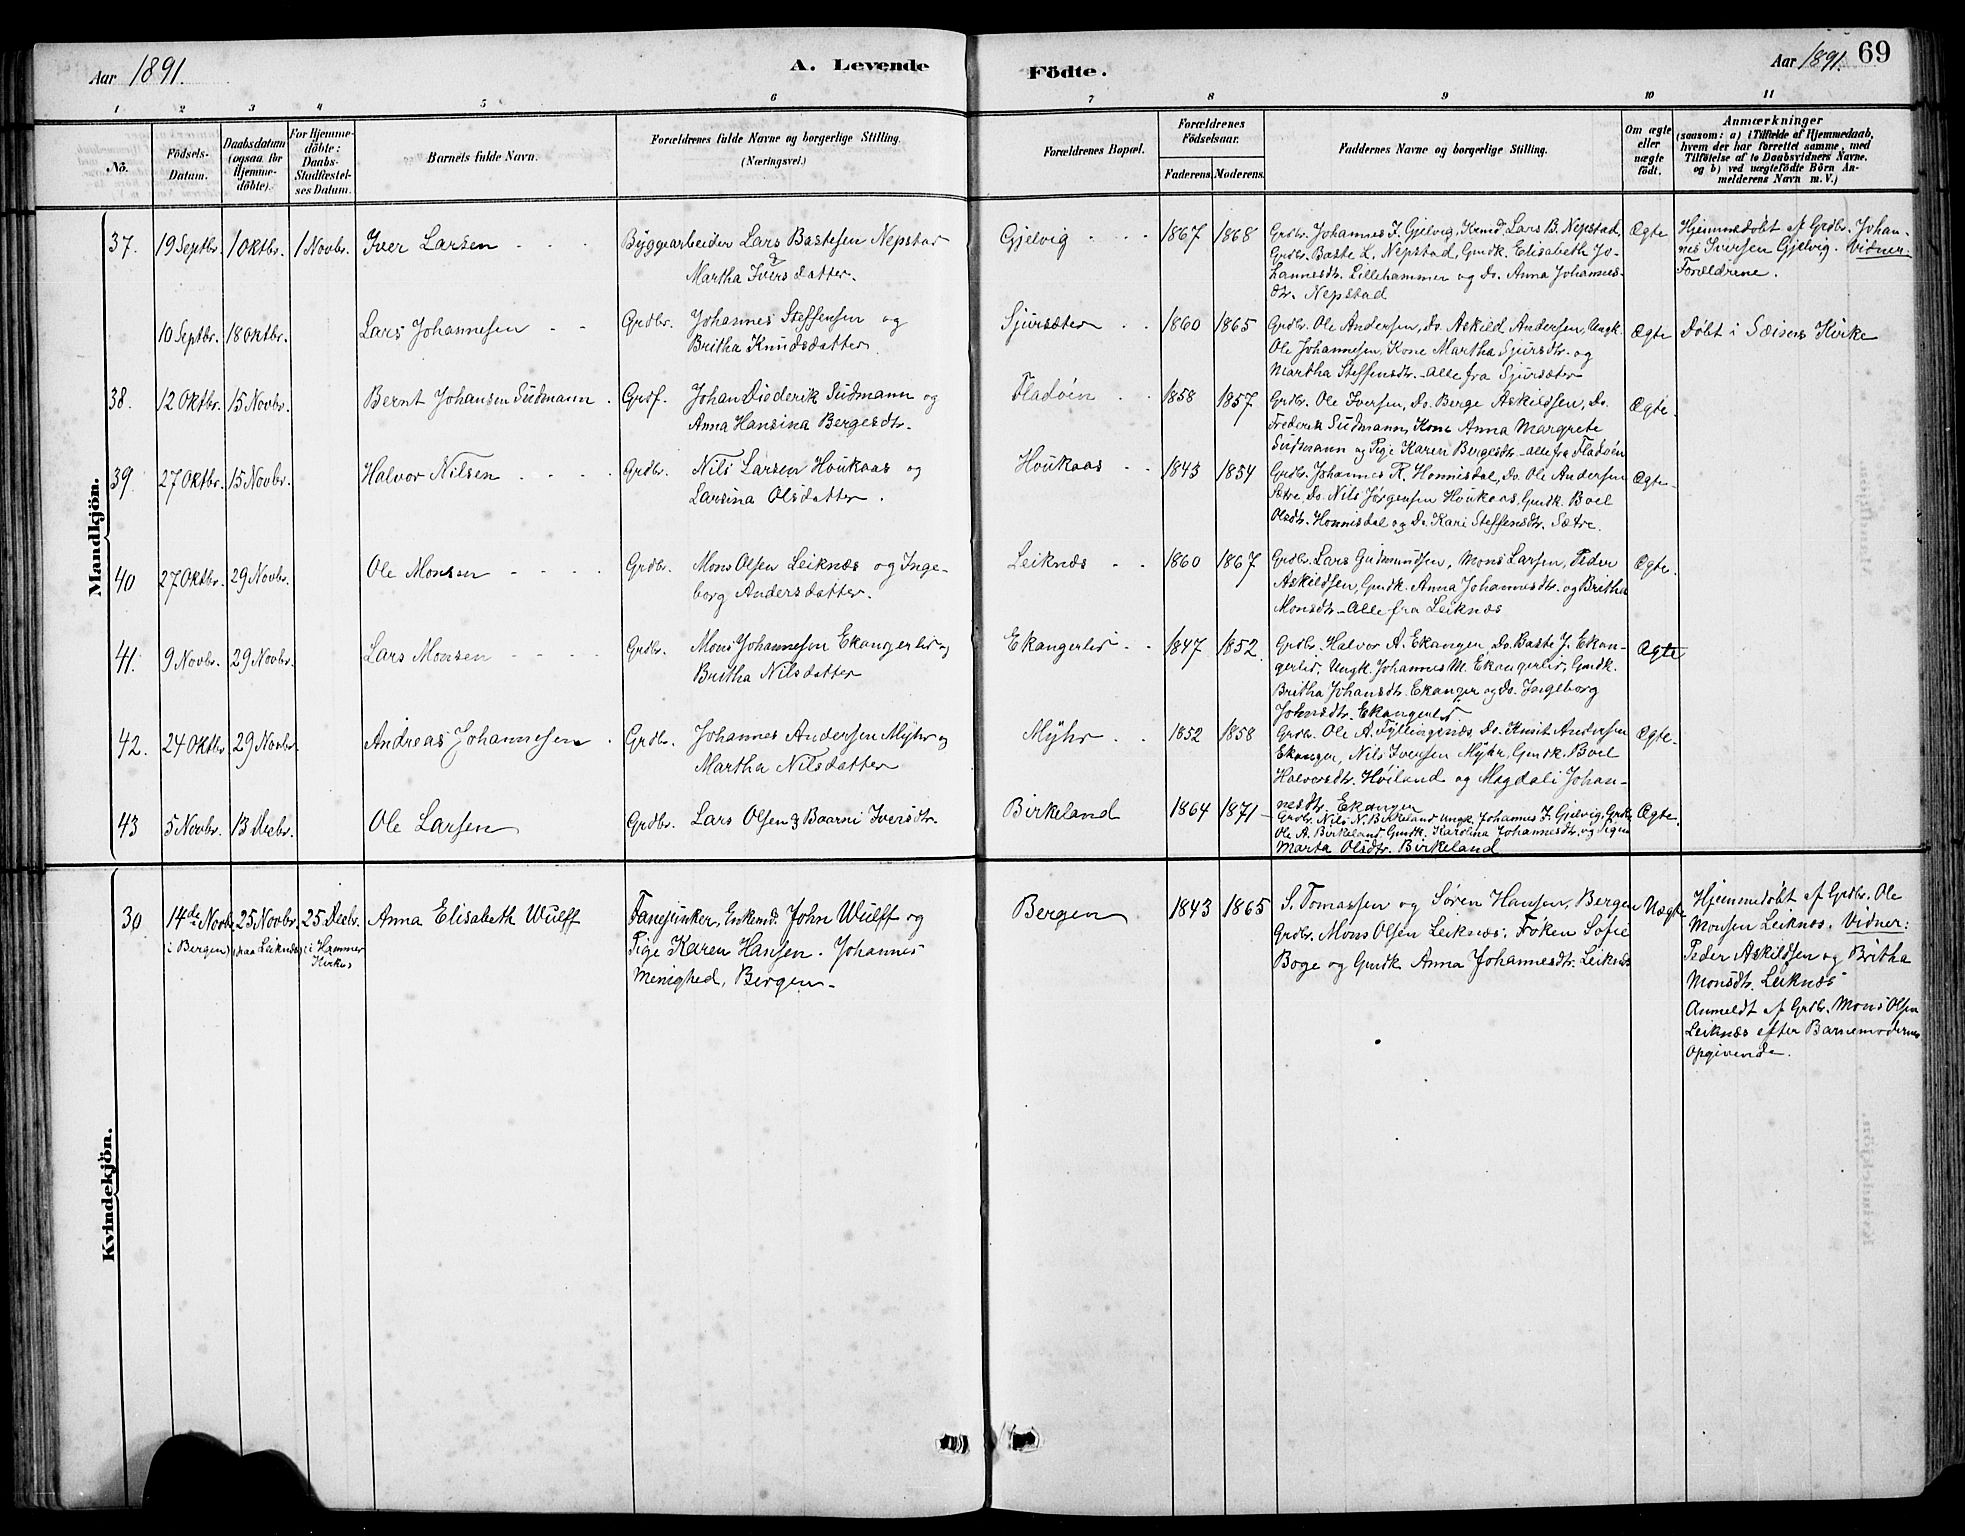 Aar 1891.
A. Levende Födte.
Aar 1891.
69
1 2 3 4 5 6 7 8 9 10 11
No.
Födsels-
Datum.
Daabsdatum
(ogsaa for
Hjemme-
döbte).
For Hjemme-
döbte:
Daabs-
Stadfæstel-
ses Datum.
Barnets fulde Navn.
Forældrenes fulde Navne og borgerlige Stilling.
(Næringsvei.)
Forældrenes Bopæl.
Forældrenes
Födselsaar.
Faderens. Moderens.
Faddernes Navne og borgerlige Stilling.
Om ægte
eller
uægte
födt.
Anmærkninger
(saasom: a) i Tilfælde af Hjemmedaab,
hvem der har forrettet samme, med
Tilföielse af to Daabsvidners Navne,
og b) ved uægtefödte Börn An-
melderens Navn m. V.)
Mandkjön.
37. 19 Septbr. 1 Oktbr. 1 Novbr. Iver Larsen
Byggearbeider Lars Bastesen Nepstad
&
Martha Iversdatter.
Gjelvig 1867 1868
Grdbr. Johannes I. Gjelvig, Kmd. Lars B. Nepstad,
Grdbr. Baste L. Nepstad, Gmdk. Elisabeth Jo-
hannesdtr. Lillehammer og Do. Anna Johannes-
dtr. Nepstad
Ægte
Hjemmedøbt af Grdbr. Johan-
nes Iversen Gjelvig. Vidner:
Forældrene.
10 Septbr. 18 Oktbr. Lars Johannesen
Grdbr. Johannes Steffensen og
Britha Knudsdatter.
Sjursæter 1860 1865
Grdbr. Ole Andersen, Do. Askild Andersen, Ungk.
Ole Johannesen, Kone Martha Sjursdtr. og
Martha Steffensdtr. alle fra Sjursæter
Ægte
Døbt i Sæims Kirke
38. 12 Oktbr. 15 Novbr. Bernt Johansen Sudmann.
Grdf. Johan Diederik Sudmann og
Anna Hansina Bergesdtr.
Fladöen 1858 1857
Grdbr. Ole Iversen, Do. Berge Askildsen, Do.
Frederik Sudmann, Kone Anna Margrete
Sudmann og Pige Karen Bergesdtr. alle fra Fladöen
Ægte.
39. 27 Oktbr. 15 Novbr. Halvor Nilsen
Grdbr. Nils Larsen Houkaas og
Larsina Olsdatter.
Houkaas 1843 1854
Grdbr. Johannes R. Honnisdal, Do. Ole Andersen
Sætre, Do. Nils Jørgensen Houkaas, Gmdk. Boel
Olsdtr. Honnisdal og Do. Kari Steffensdtr. Sætre.
Ægte
40 27 Oktbr. 29 Novbr. Ole Monsen
Grdbr. Mons Olsen Leiknæs og Inge-
borg Andersdatter.
Leiknæs 1860 1867
Grdbr. Lars Gudmundsen, Mons Larsen, Peder
Askildsen, Gmdk. Anna Johannesdtr. og Britha
Monsdtr. Alle fra Leiknæs
Ægte.
41. 9 Novbr. 29 Novbr. Lars Monsen
Grdbr. Mons Johannesen Ekangerlid og
Britha Nilsdatter
Ekangerlid 1847 1852
Grdbr. Halvor A. Ekanger, Do. Baste J. Ekan-
gerlid, Ungk. Johannes M. Ekangerlid, Gmdk.
Britha Johansdtr. Ekanger og Do. Ingeborg
Johnsdtr. Ekangerlid
Ægte
42. 24 Oktbr. 29 Novbr. Andreas Johannesen.
Grdbr. Johannes Andersen Myhr og
Martha Nilsdatter
Myhr 1852 1858
Grdbr. Ole A. Fyllingsnæs Do. Knut Andersen
Ekanger, Nils Iversen Myhr, Gmdk. Boel
Halvorsdtr. Höiland og Magdali Johan-
nesdtr. Ekanger
Ægte
43 5 Novbr. 13 Decbr. Ole Larsen
Grdbr. Lars Olsen & Baarni Iversdtr.
Birkeland 1864 1871
Grdbr. Nils N. Birkeland Ungk. Johannes I. Gjelvig, Grdbr.
Ole A. Birkeland, Gmdk. Karolina Johannesdtr. og Pigen
Marta Olsdtr. Birkeland
Ægte.
Kvindekjön.
30 14de Novbr. 25 Novbr. 25 Decbr. Anna Elisabeth Wulff
i Bergen) (paa Leiknæs) (i Hammer
Kirke)
Fanejunker, Enkmd. John Wulff og
Pige Karen Hansen. Johannes
Menighed, Bergen.
Bergen 1843 1865
S. Tomassen og Søren Hansen, Bergen
Grdbr. Mons Olsen Leiknæs. Frøken Sofie
Boge og Gmdk Anna Johannesdtr. Leiknæs
Uægte
Hjemmedøbt af Grdbr. Ole
Monsen Leiknæs. Vidner:
Peder Askildsen og Britha
Monsdtr. Leiknæs
Anmeldt af Grdbr. Mons Olsen
Leiknæs efter Barnemoderens
Opgivende.